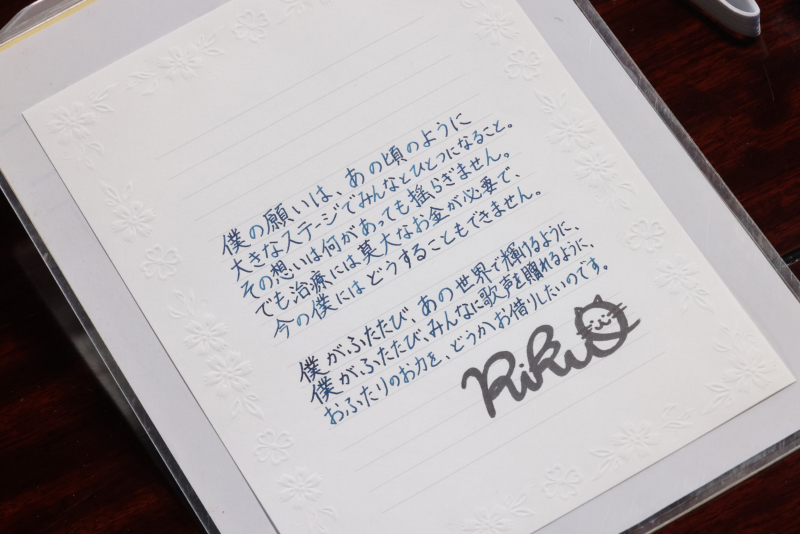 僕の願いは、あの頃のように
大きなステージでみんなとひとつになること。
その想いは何があっても揺らぎません。
でも治療には莫大なお金が必要で、
今の僕にはどうすることもできません。
僕がふたたび、あの世界で輝けるように、
僕がふたたび、みんなに歌声を贈れるように、
おふたりのお力を、どうかお借りしたいのです。
RiKu